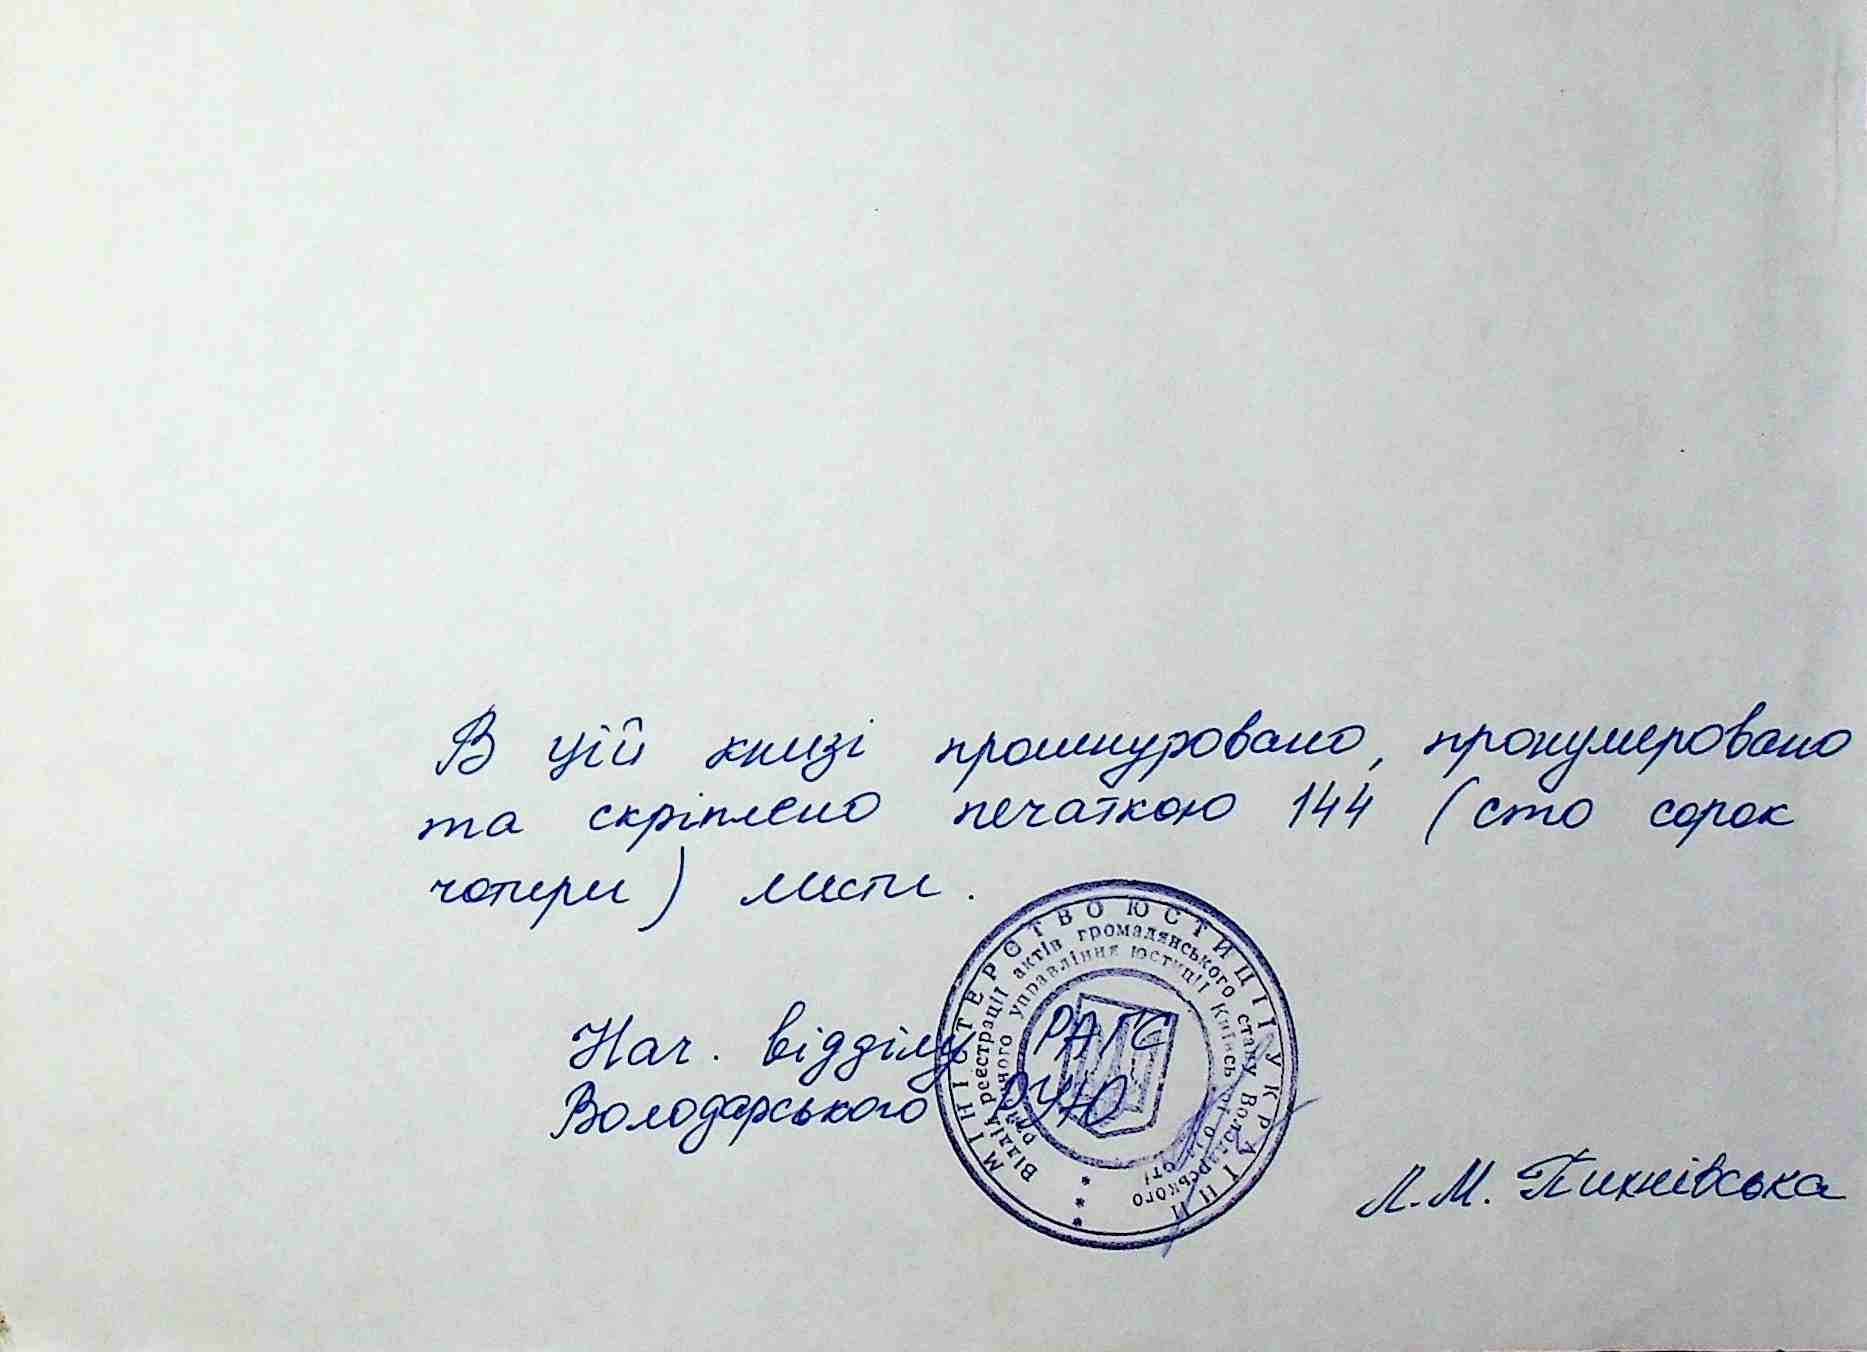 В цій книзі прошнуровано, пронумеровано
та скріплено печаткою 144 (сто сорок
чотири) листи.
Нач. відділу РАГС
Володарського РУЮ
Л.М. Пихнівська
МІНІСТЕРСТВО ЮСТИЦІЇ УКРАЇНИ
Відділ реєстрації актів громадянського стану Володарського
районного управління юстиції Київської області